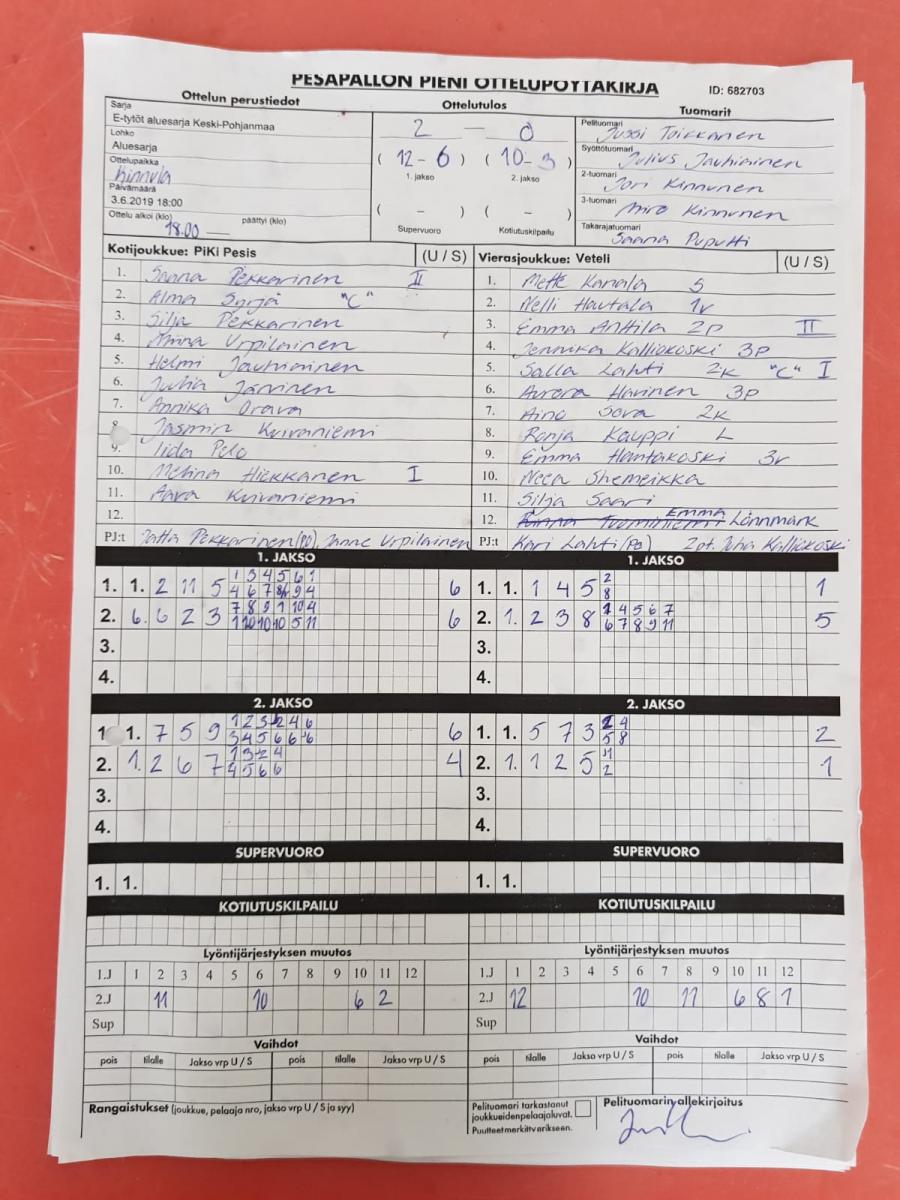 PESÄPALLON PIENI OTTELUPÖYTÄKIRJA
ID: 682703
Ottelun perustiedot
Sarja
E-tytöt aluesarja Keski-Pohjanmaa
Lohko
Aluesarja
Ottelupaikka
Kinnula
Päivämäärä
3.6.2019 18:00
Ottelu alkoi (klo) päättyi (klo)
18.00
Ottelutulos
2 – 0
( 12 - 6 ) ( 10 - 3 )
1. jakso 2. jakso
( - ) ( - )
Supervuoro Kotiutuskilpailu
Tuomarit
Pelituomari
Jussi Toikkanen
Syöttötuomari
Julius Jauhiainen
2-tuomari
Jori Kinnunen
3-tuomari
Miro Kinnunen
Takarajatuomari
Saana Puputti
Kotijoukkue: PiKi Pesis (U / S)
1. Saana Pekkarinen II
2. Alma Syrjä "C"
3. Silja Pekkarinen
4. Minna Urpilainen
5. Helmi Jauhiainen
6. Juulia Janinen
7. Annika Orava
8. Jasmin Kuivaniemi
9. Iida Pelo
10. Melina Hiekkanen I
11. Aava Kuivaniemi
12.
PJ:t Jatta Pekkarinen (PO), Janne Urpilainen
Vierasjoukkue: Veteli (U / S)
1. Mette Kanala S
2. Nelli Hautala 1v
3. Emma Anttila 2p II
4. Jennika Kalliokoski 3p
5. Salla Lahti 2k "C" I
6. Aurora Harinen 3p
7. Aino Sova 2k
8. Ronja Kauppi L
9. Emma Hautakoski 3v
10. Neea Shemeikka
11. Silja Saari
12. Emma Lönnmark
PJ:t Kari Lahti (PO) 2pt. Juha Kalliokoski
1. JAKSO
1. 1. 2 11 5 1 3 4 5 6 1 6
4 6 7 8 9 4
2. 6. 6 2 3 7 8 9 1 10 4 6
1 10 10 10 5 11
3.
4.
1. JAKSO
1. 1. 1 4 5 2 1
8
2. 1. 2 3 8 1 4 5 6 7 5
6 7 8 9 11
3.
4.
2. JAKSO
1 1. 7 5 9 1 2 3 2 4 6 6
3 4 5 6 6 6
2. 1. 2 6 7 1 3 2 4 4
4 5 6 6
3.
4.
2. JAKSO
1. 1. 5 7 3 2 4 2
5 8
2. 1. 1 2 5 11 1
2
3.
4.
SUPERVUORO
1. 1.
SUPERVUORO
1. 1.
KOTIUTUSKILPAILU
KOTIUTUSKILPAILU
Lyöntijärjestyksen muutos
1.J 1 2 3 4 5 6 7 8 9 10 11 12
2.J 11 10 6 2
Sup
Lyöntijärjestyksen muutos
1.J 1 2 3 4 5 6 7 8 9 10 11 12
2.J 12 10 11 6 8 1
Sup
Vaihdot
pois tilalle Jakso vrp U / S pois tilalle Jakso vrp U / S
Vaihdot
pois tilalle Jakso vrp U / S pois tilalle Jakso vrp U / S
Rangaistukset (joukkue, pelaaja nro, jakso vrp U / S ja syy)
Pelituomari tarkastanut
joukkueiden pelaajaluvat.
Puutteet merkitty erikseen.
Pelituomarin allekirjoitus